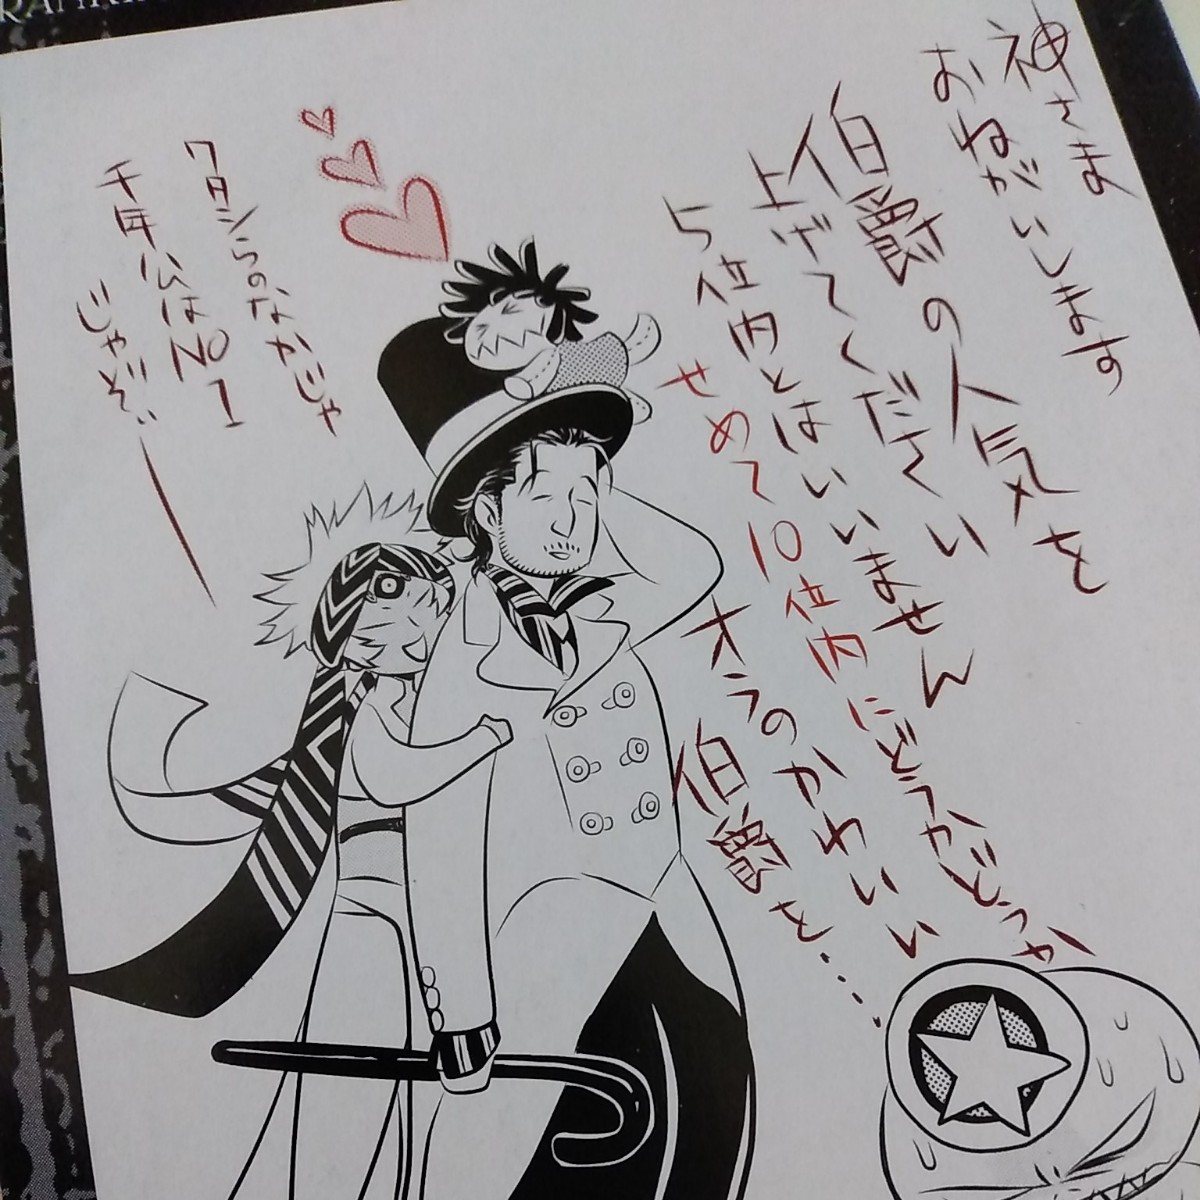 神さま
おねがいします
伯爵の人気を
上げてください
5位内とはいいません
せめて10位内にどうかどうか
オラのかわいい
伯爵を・・・・・
ワタシらのなかじゃ
千年公はNO1
じゃぞ！